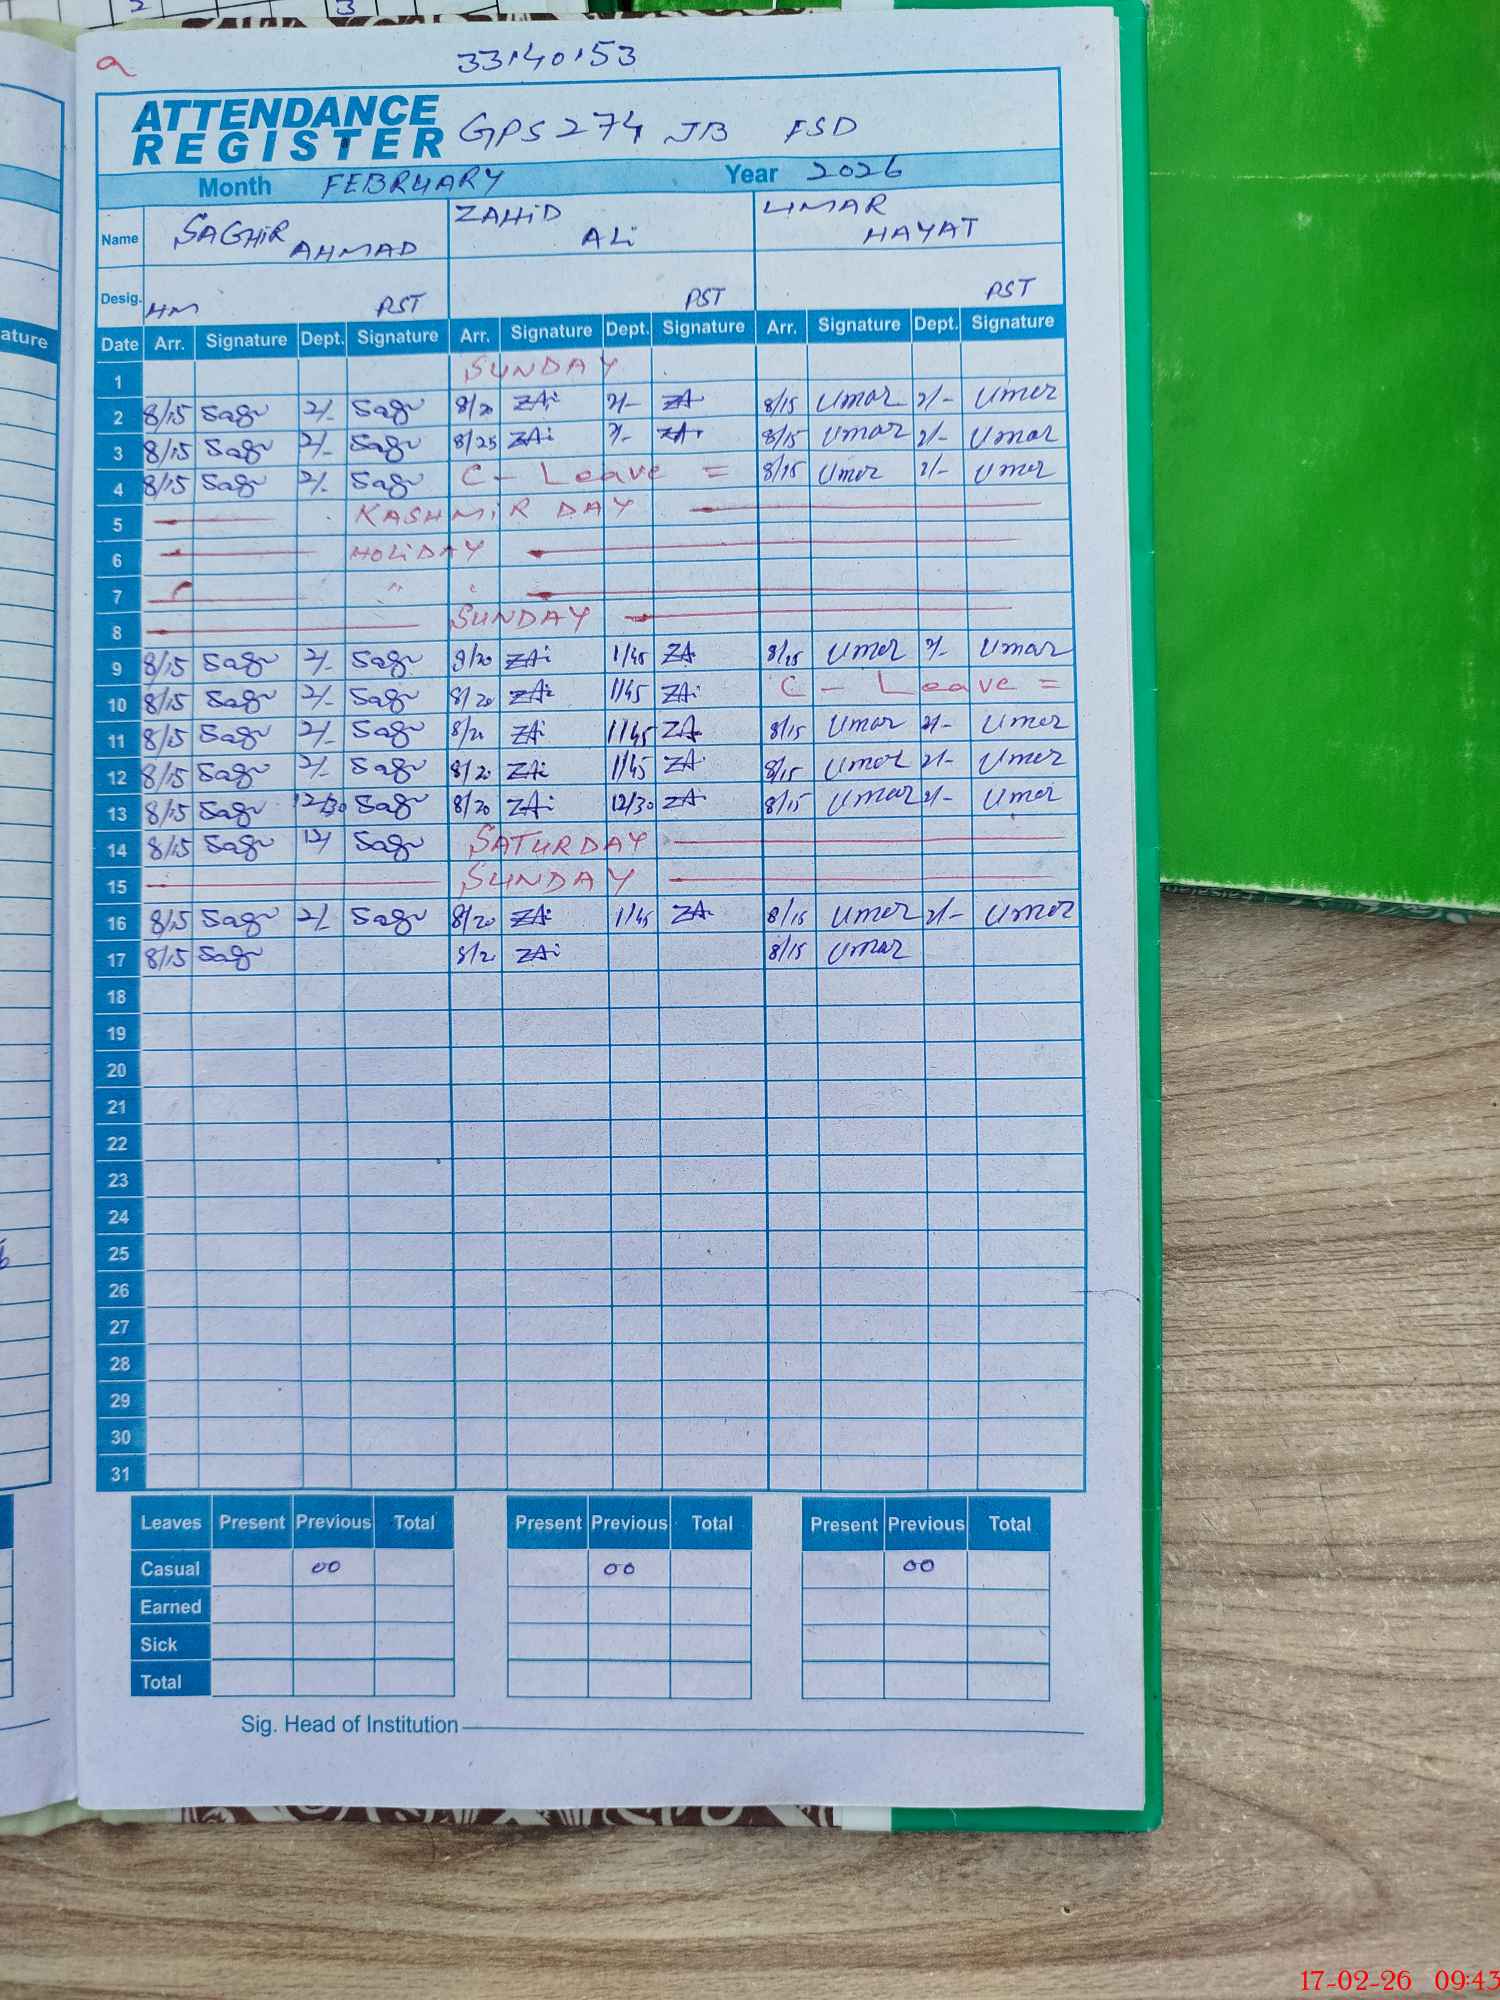 2 3
a 33140153
ATTENDANCE
REGISTER GPS 274 JB FSD
Month FEBRUARY Year 2026
Name SAGHiR AHMAD ZAHiD ALi UMAR HAYAT
Desig. HM PST PST PST
ature
Date Arr. Signature Dept. Signature Arr. Signature Dept. Signature Arr. Signature Dept. Signature
1 SUNDAY
2 8/15 Sagr 2/- Sagr 8/20 ZAi 2/- ZA 8/15 Umar 2/- Umer
3 8/15 Sagr 2/- Sagr 8/25 ZAi 2/- ZA 8/15 Umar 2/- Umar
4 8/15 Sagr 2/- Sagr C - Leave = 8/15 Umer 2/- Umer
5 KASHMiR DAY
6 HOLiDAY
7 " "
8 SUNDAY
9 8/15 Sagr 2/- Sagr 8/20 ZAi 1/45 ZA 8/15 Umer 2/- Umar
10 8/15 Sagr 2/- Sagr 8/20 ZAi 1/45 ZAi C - Leave =
11 8/15 Sagr 2/- Sagr 8/20 ZAi 1/45 ZA 8/15 Umar 2/- Umer
12 8/15 Sagr 2/- Sagr 8/20 ZAi 1/45 ZA 8/15 Umar 2/- Umer
13 8/15 Sagr 12/30 Sagr 8/20 ZAi 12/30 ZA 8/15 Umar 2/- Umer
14 8/15 Sagr 12/ Sagr SATURDAY
15 SUNDAY
16 8/15 Sagr 2/- Sagr 8/20 ZAi 1/45 ZA 8/15 Umer 2/- Umer
17 8/15 Sagr 8/20 ZAi 8/15 Umar
18
19
20
21
22
23
24
25
26
27
28
29
30
31
Leaves Present Previous Total Present Previous Total Present Previous Total
Casual 00 00 00
Earned
Sick
Total
Sig. Head of Institution
17-02-26 09:43